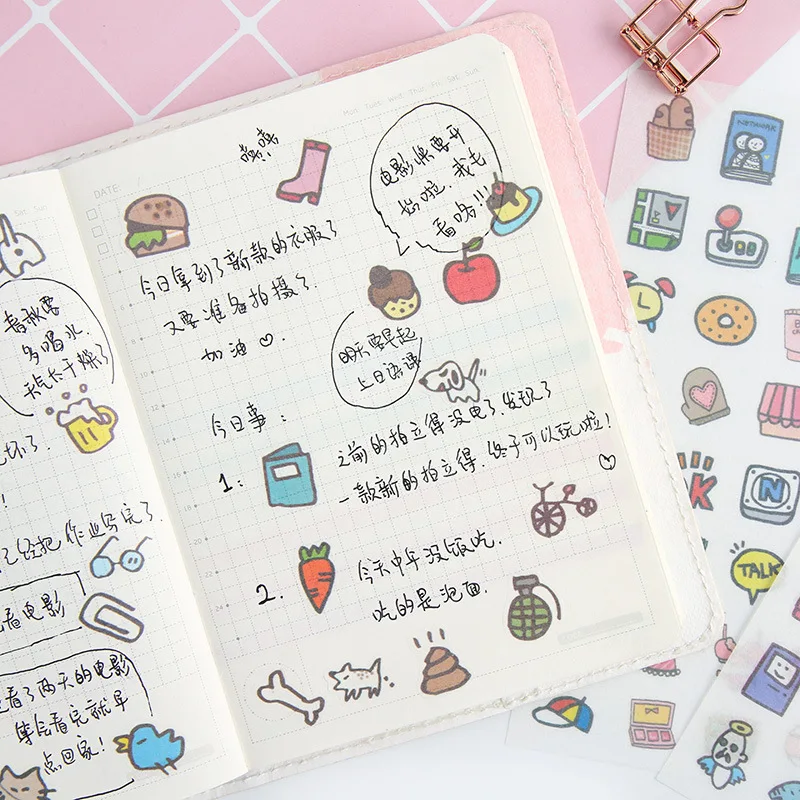 春秋要
多喝水.
天气太干燥了
坏了.
!
已经把作业写完了.
看电影
看了两天的电影
看完就早
点回家!
DATE:
Mon Tues Wed Thu Fri Sat Sun
嘻嘻
电影快要开
始啦.我去
看咯!!!
今日拿到了新款的衣服了
又要准备拍摄了.
加油♡.
明天要早起
上日语课
今日事:
1:
之前的拍立得没电了.发现了
一款新的拍立得.终于可以玩啦!
♡
2.
今天中午没饭吃.
吃的是泡面.
10
12
14
16
18
22
24
K
N
TALK